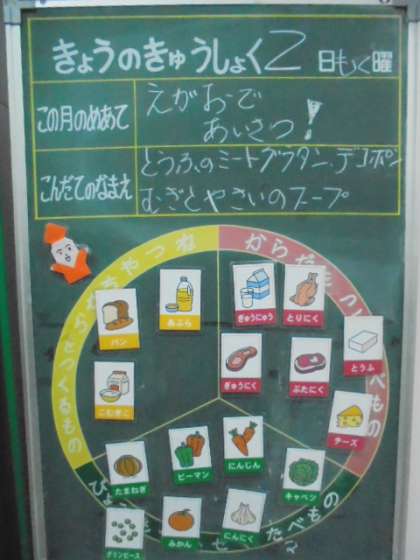 きょうのきゅうしょく 2 日もく曜
この月のめあて
えがおで
あいさつ!
こんだてのなまえ
とうふのミートグラタン、デコポン
むぎとやさいのスープ
ねつや
からだをつ
パン
あぶら
ぎゅうにゅう
とりにく
とうふ
こむぎこ
ぎゅうにく
ぶたにく
チーズ
べもの
たまねぎ
ピーマン
にんじん
キャベツ
グリンピース
みかん
にんにく
たべもの